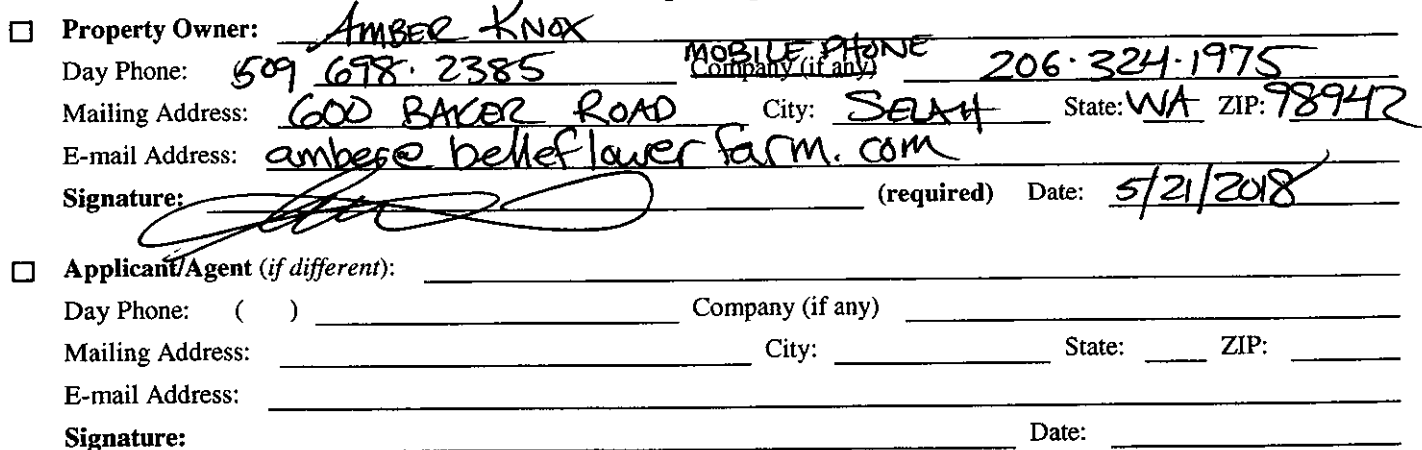 ☐ Property Owner: AMBER KNOX
Day Phone: 509 698. 2385 MOBILE PHONE Company (if any) 206.324.1975
Mailing Address: 600 BAKER ROAD City: SELAH State: WA ZIP: 98942
E-mail Address: amber@belleflowerfarm.com
Signature: (required) Date: 5/21/2018
☐ Applicant/Agent (if different):
Day Phone: ( ) Company (if any)
Mailing Address: City: State: ZIP:
E-mail Address:
Signature: Date: